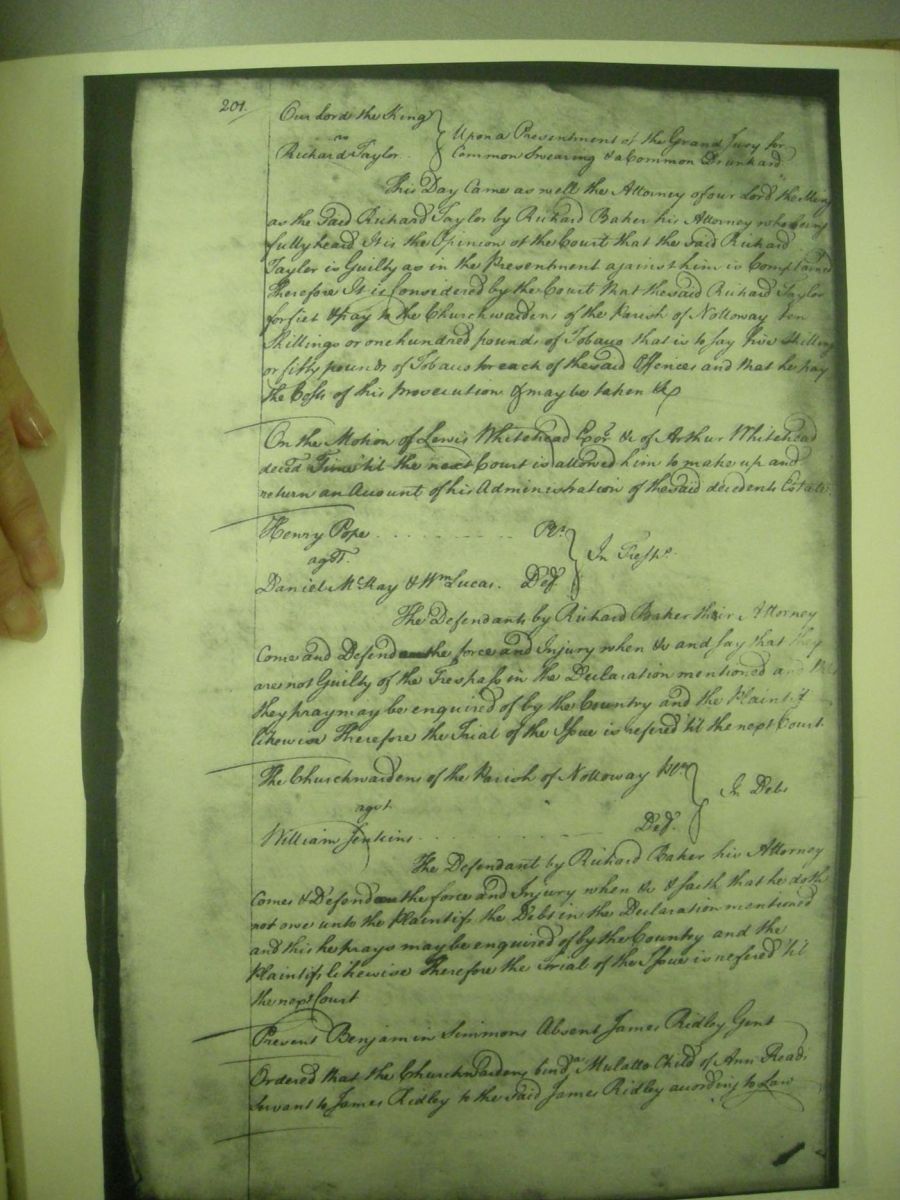 201.
Our Lord the King
vs
Richard Taylor
Upon a Presentment of the Grand Jury for
Common Swearing & a Common Drunkard
This Day Came as well the Attorney of our Lord the King
as the said Richard Taylor by Richard Baker his Attorney who being
fully heard It is the Opinion of the Court that the said Richard
Taylor is Guilty as in the Presentment against him is Complained
Therefore It is Considered by the Court that the said Richard Taylor
forfiet & pay to the Churchwardens of the Parish of Nottoway ten
Shillings or one hundred pounds of Tobacco that is to say five Shillings
or fifty pounds of Tobacco for each of the said Offences and that he pay
the Costs of this Prosecution & may be taken &c
On the Motion of Lewis Whitehead Exor. &c of Arthur Whitehead
deced Time 'til the next Court is allowed him to make up and
return an Account of his Administration of the said decedents Estate.
Henry Pope Plt.
agst.
Daniel McKay & Wm Lucas. Deft
In Tresps.
The Defendants by Richard Baker their Attorney
Come and Defend the force and Injury when &c and say that they
are not Guilty of the Trespass in the Declaration mentioned and this
they pray may be enquired of by the Country and the Plaintif
likewise Therefore the Trial of the Issue is refered 'til the next Court
The Churchwardens of the Parish of Nottoway Plts
agst.
William Jenkins Deft.
In Debt
The Defendant by Richard Baker his Attorney
Comes & Defend the force and Injury when &c & saith that he doth
not owe unto the Plaintifs the Debt in the Declaration mentioned
and this he prays may be enquired of by the Country and the
Plaintifs likewise Therefore the Trial of the Issue is refered 'til
the next Court
Present Benjamin Simmons Absent James Ridley Gent
Ordered that the Churchwardens bind a Mulatto Child of Ann Read
Servant to James Ridley to the said James Ridley according to Law